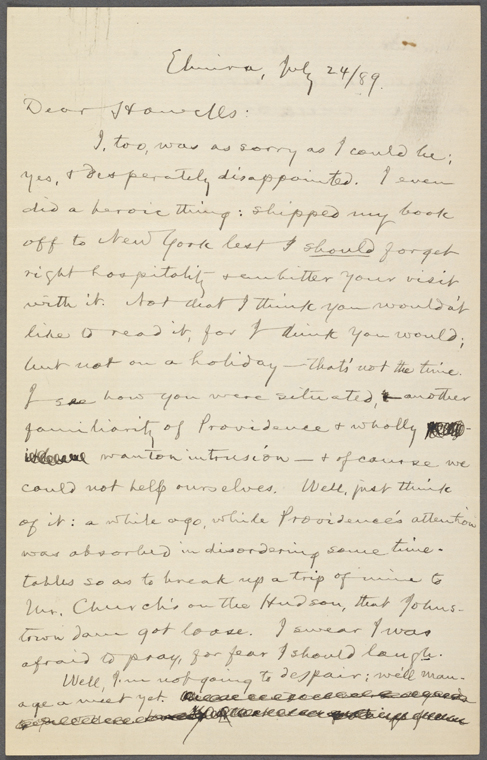 Elmira, July 24/89.
Dear Howells:
I, too, was as sorry as I could be;
yes, & desperately disappointed. I even
did a heroic thing: shipped my book
off to New York lest I should forget
right hospitality & embitter your visit
with it. Not that I think you wouldn't
like to read it, for I think you would;
but not on a holiday — that's not the time.
I see how you were situated, — another
familiarity of Providence & wholly
wanton intrusion — & of course we
could not help ourselves. Well, just think
of it: a while ago, while Providence's attention
was absorbed in disordering some time-
tables so as to break up a trip of mine to
Mr. Church's on the Hudson, that Johns-
town dam got loose. I swear I was
afraid to pray, for fear I should laugh.
Well, I'm not going to despair; we'll man-
age a meet yet.